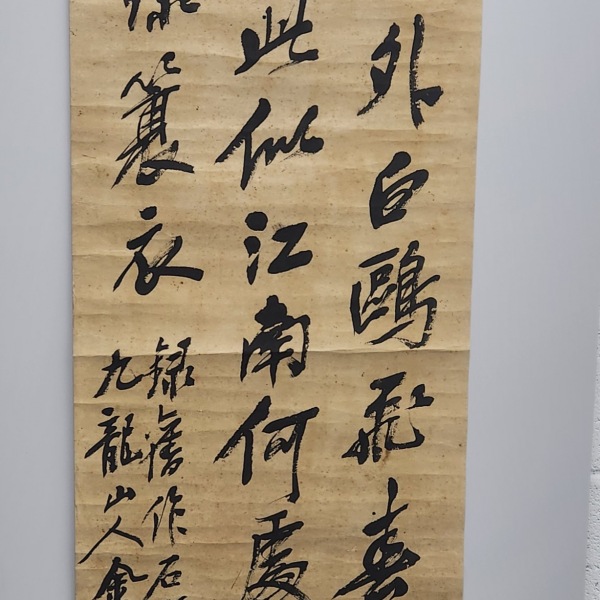 外白鷗飛春
此似江南何處
簑衣
錄舊作石
九龍山人金